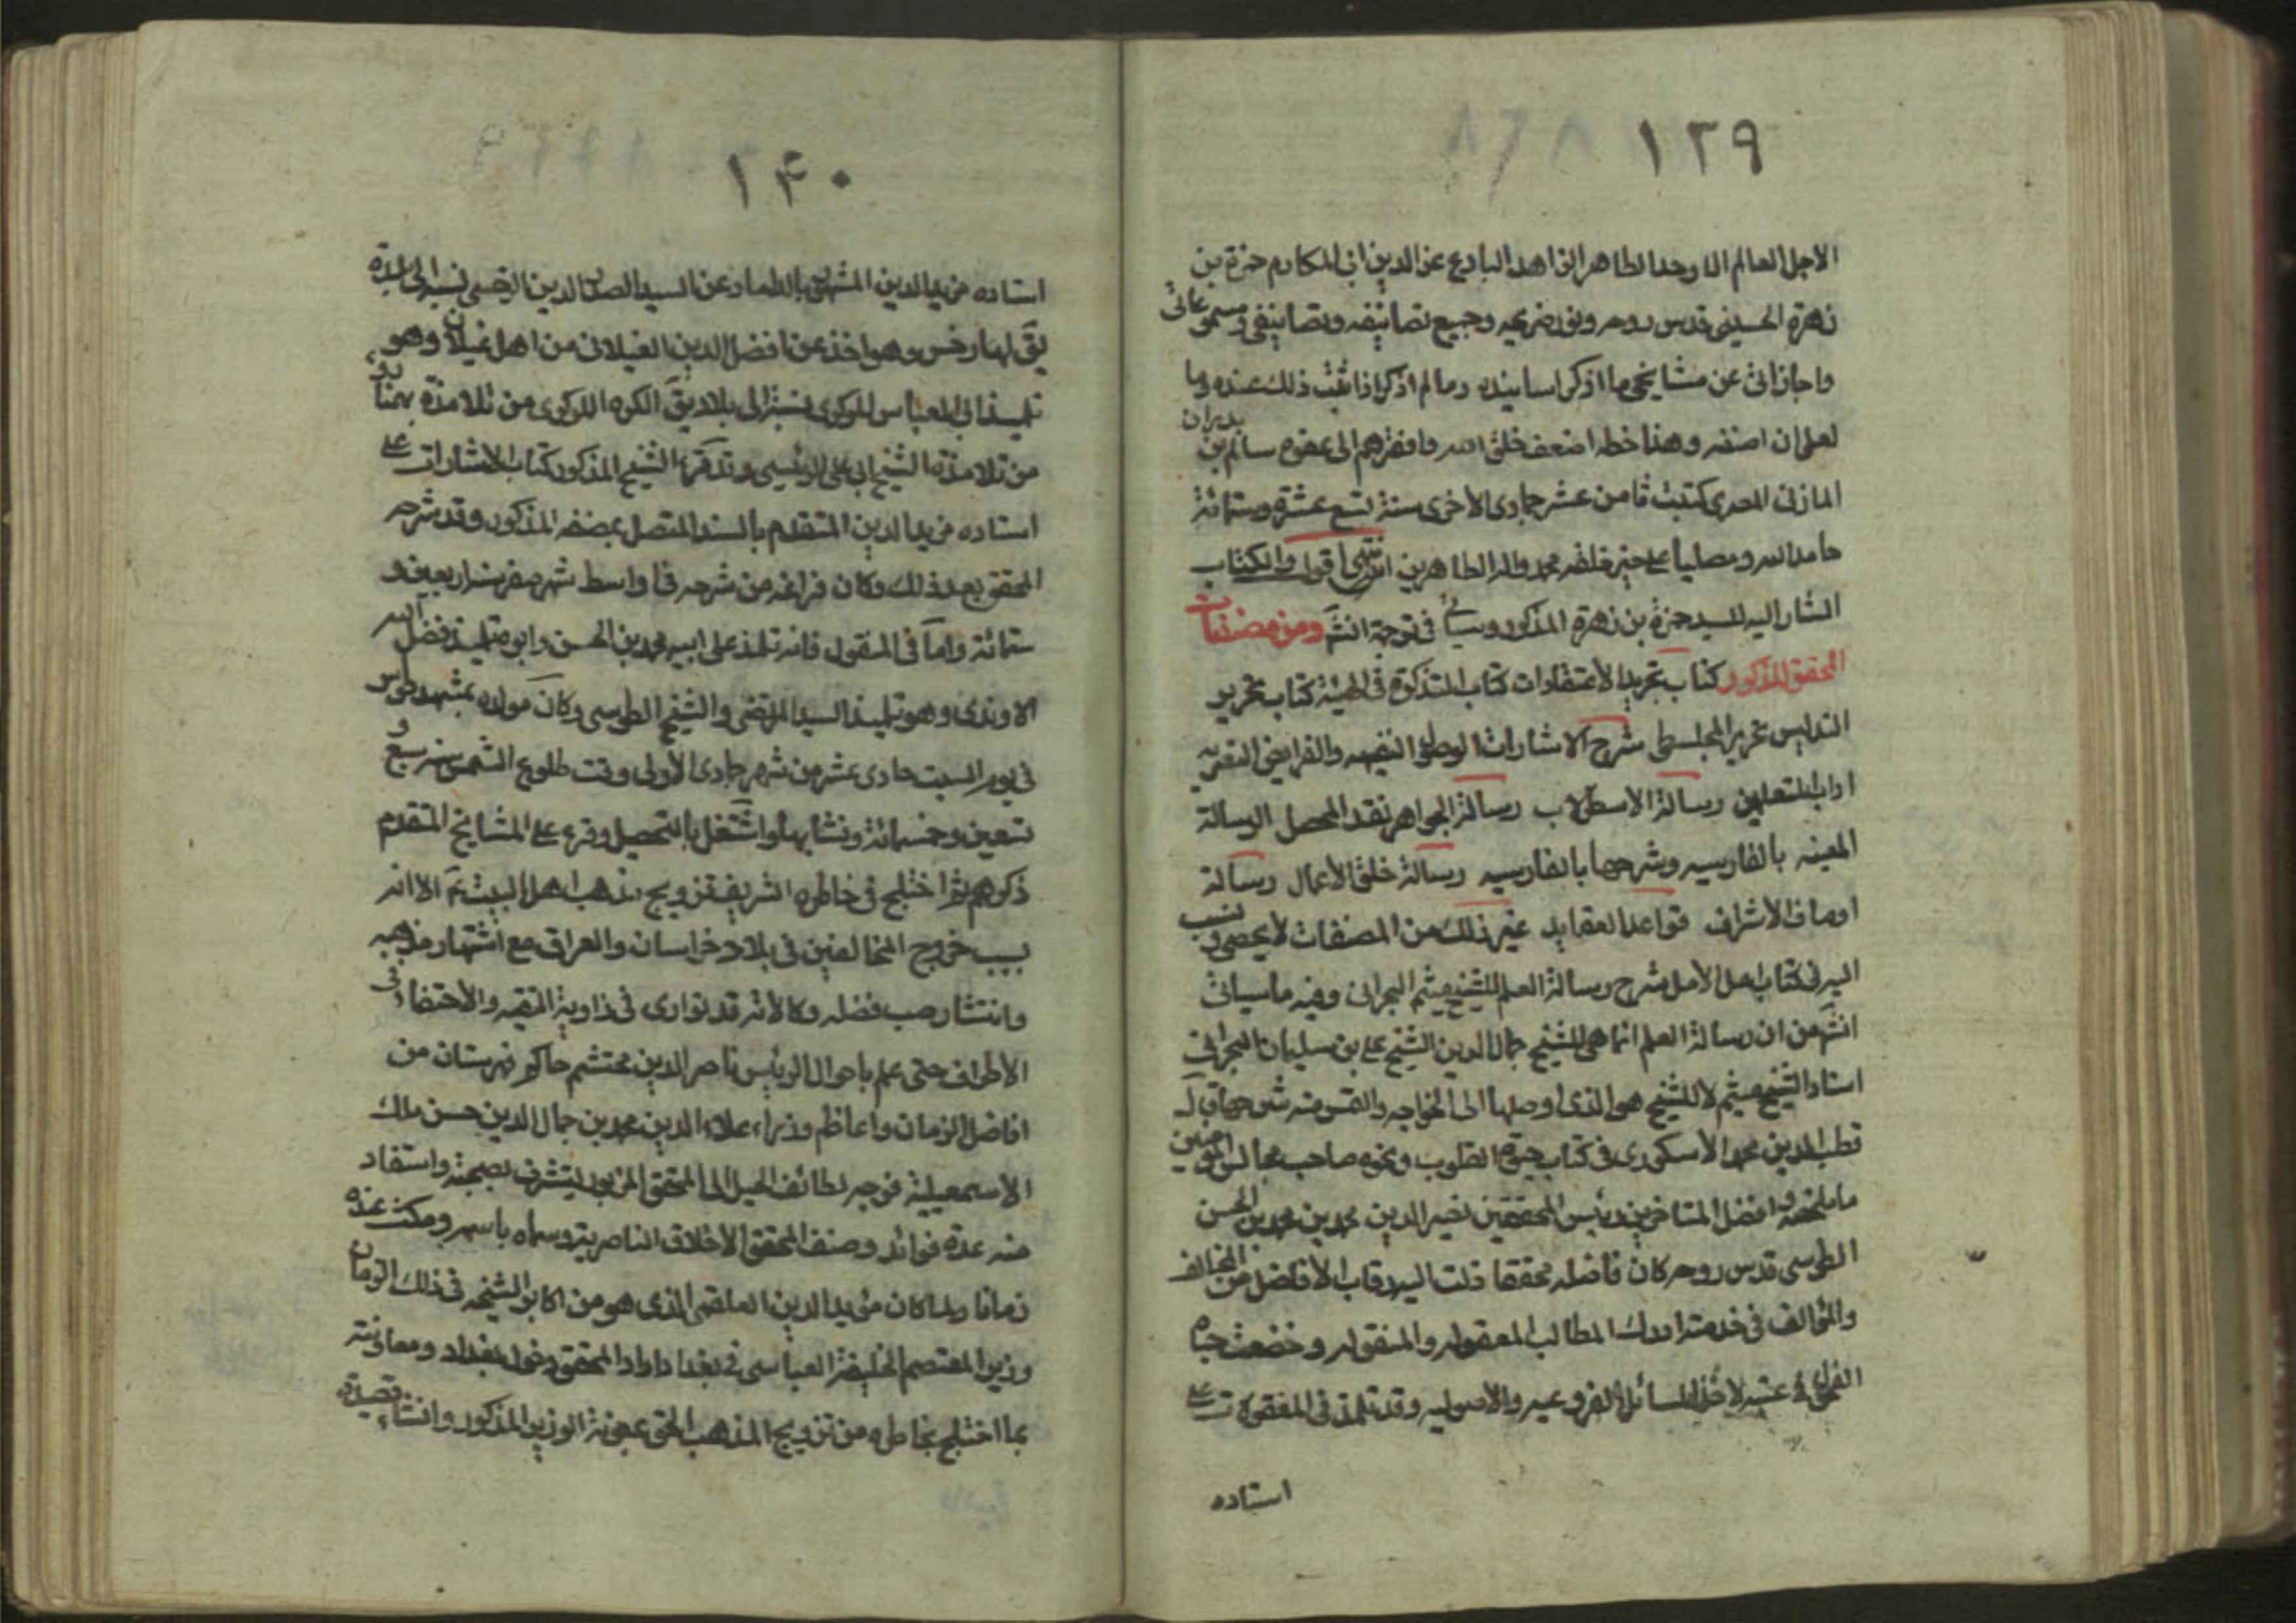 ١٣٩
الاجل العالم الاوحد الطاهر الزاهد البارع عز الدين ابى المكارم حمزة بن
زهرة الحسينى قدس روحه ونور ضريحه وجميع تصانيفه وتصانيفى ومسموعاتى
واجازاتى عن مشايخى ما اذكر اسانيده وما لم اذكر اذا ثبت ذلك عنده وما
لعلى ان اصنفه وهذا خط اضعف خلق الله وافقرهم الى عفوه سالم بن بدران
المازنى المصرى كتبت ثامن عشر جمادى الأخرى سنة تسع عشرة وستمائة
حامدا لله ومصليا على خير خلقه محمد واله الطاهرين انتهى اقول والكتاب
المشار اليه للسيد حمزة بن زهرة المذكور وسياتى فى ترجمة انشّ ومن مصنفات
المحقق المذكور كتاب تجريد الأعتقادات كتاب التذكرة فى الهيئة كتاب تحرير
اقليدس تحرير المجلسطى شرح الاشارات الفرايض النصيريه
اداب المتعلمين رسالة الاسطرلاب رسالة الجواهر نقد المحصل الرسالة
المعينيه بالفارسيه وشرحها بالفارسيه رسالة خلق الأعمال رسالة
اوصاف الأشراف قواعد العقايد غير ذلك من المصنفات لا يحصى ونسب
اليه فى كتاب امل الأمل شرح رسالة العلم للشيخ ميثم البحرانى وفيه ما سياتى
انشّ من ان رسالة العلم انما هى للشيخ جمال الدين الشيخ على بن سليمان البحرانى
استاد الشيخ ميثم لا للشيخ هو الذى اوصلها الى الخواجه والتمس منه شرحها قال
قطب الدين محمد الأسكورى فى كتاب حيوة القلوب ونحوه صاحب مجالس المؤمنين
ما ملخصه افضل المتاخرين ورئيس المحققين نصير الدين محمد بن محمد بن الحسن
الطوسى قدس روحه كان فاضلا محققا ذلت اليه رقاب الأفاضل من المخالف
والمؤالف فى خدمته لدرك المطالب المعقوله والمنقوله وخضعت جباه
الفحول فى عتبه لاخذ المسائل الفروعيه والاصوليه وقد تلمذ فى المعقولات على
استاده
١۴٠
استاده فريد الدين المشهور بالداماد عن السيد الصدر الدين السرخسى نسبة الى بلدة
يقّ لها سرخس وهو اخذ عن افضل الدين الغيلانى من اهل غيلان وهو
تلميذ ابى العباس اللوكرى نسبة الى بلاد يقّ اللوكر اللوكرى من تلامذة بهمنيار
من تلامذة الشيخ ابى على الرئيس وقد قرء الشيخ المذكور كتاب الاشارات على
استاده فريد الدين المتقدم بالسند المتصل بمصنفه المذكور وقد شرحه
المحقق بعد ذلك وكان فراغه من شرحه فى اواسط شهر صفر سنة اربعين و
ستمائة واما فى المنقول فانه تلمذ على ابيه محمد بن الحسن وابوه تلميذ فضل الله
الاوندى وهو تلميذ السيد المرتضى والشيخ الطوسى وكان مولده بمشهد طوس
فى يوم السبت حادى عشر من شهر جمادى الأولى وقت طلوع الشمس سنة سبع و
تسعين وخمسمائة ونشا بها واشتغل بالتحصيل وقرء على المشايخ المتقدم
ذكرهم ثم اختلج فى خاطره الشريف تزويج مذهب اهل البيت عّم الا انه
بسبب خروج المخالفين فى بلاد خراسان والعراق مع اشتهار مذهبه
وانتشار صيت فضله وكمالاته قد توارى فى زاوية التقيه والأختفاء فى
الأطراف حتى علم باحواله الرئيس ناصر الدين محتشم حاكم قهستان من
افاضل الزمان واعاظم وزراء علاء الدين محمد بن جلال الدين حسن ملك
الاسمعيلية فوجه لطائف الحيل الى المحقق المزبور ليتشرف بصحبته واستفاد
منه عدة فوائد وصنف المحقق الأخلاق الناصرية وسماه باسمه ومكث عنده
زمانا ولما كان مؤيد الدين العلقمى الذى هو من اكابر الشيعة فى ذلك الزمان
وزير المعتصم الخليفة العباسى فى بغداد اراد المحقق دخول بغداد ومعاونته
بما اختلج بخاطره من تزويج المذهب الحق بمعونة الوزير المذكور وانشاء قصيدة